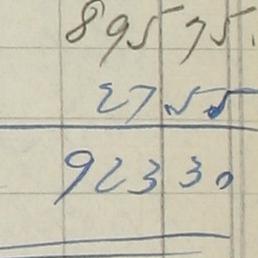 895 75.
27.55
923 30